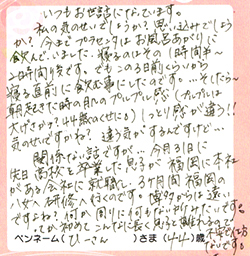 いつもお世話になっています。
私の気のせいでしょうか？思い込みでしょう
か？今までプラセンタはお風呂あがりに
飲んでいました。寝るのはその1時間半〜
2時間後です。でもこの3日前くらいから
寝る直前に飲む事にしたのです…そしたら〜
朝起きた時の肌のプルプル感（プルプルは
大げさか？44歳のくせに）しっとり感が違う!!
気のせいですかね？違う気がするんですけど…
関係ない話ですが…今月3日に
先日高校を卒業した息子が福岡に本社
がある会社に就職し、3ヶ月間福岡の
八女へ研修へ行くのです。
ですよね？何か
てか初めてこんなに長く息子と離れるので
ないです。
ペンネーム（ひーさん）さま（44）歳